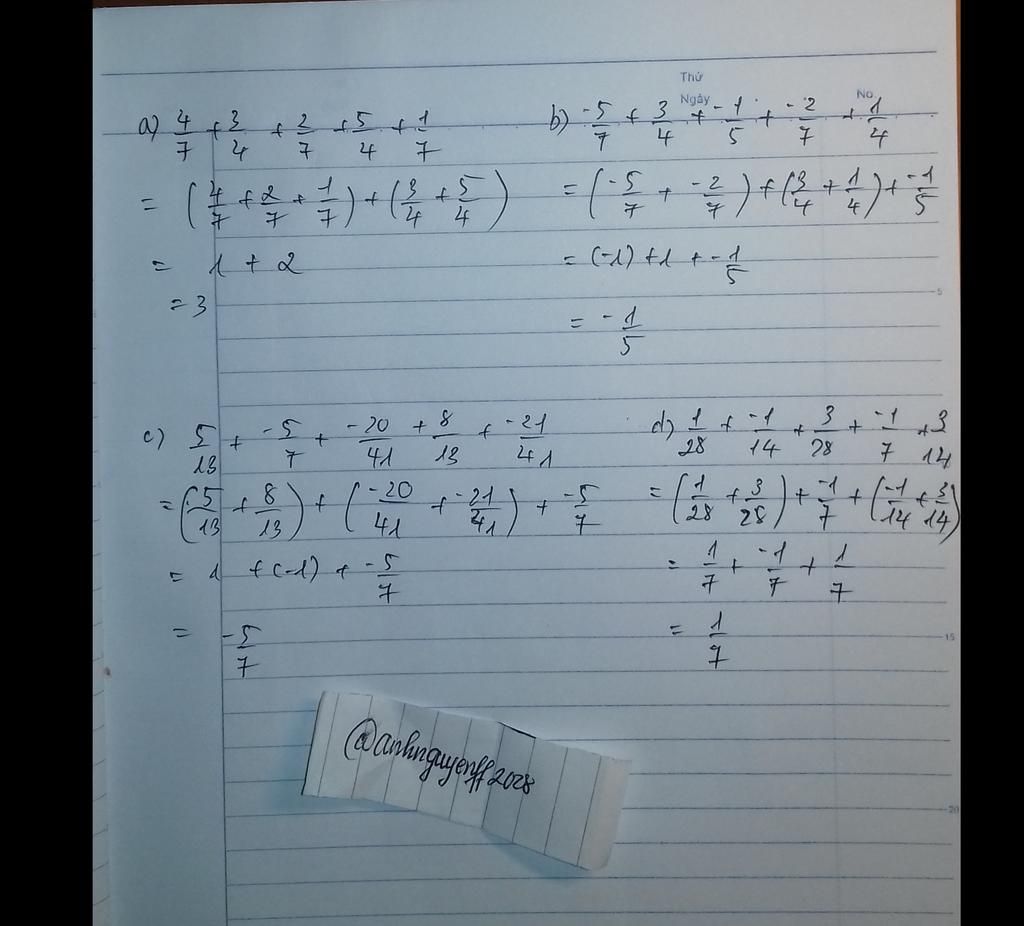 Thứ
Ngày
No
a) 4/7 + 3/4 + 2/7 + 5/4 + 1/7
= (4/7 + 2/7 + 1/7) + (3/4 + 5/4)
= 1 + 2
= 3
b) -5/7 + 3/4 + -1/5 + -2/7 + 1/4
= (-5/7 + -2/7) + (3/4 + 1/4) + -1/5
= (-1) + 1 + -1/5
= -1/5
5
c) 5/13 + -5/7 + -20/41 + 8/13 + -21/41
= (5/13 + 8/13) + (-20/41 + -21/41) + -5/7
= 1 + (-1) + -5/7
= -5/7
d) 1/28 + -1/14 + 3/28 + -1/7 + 3/14
= (1/28 + 3/28) + -1/7 + (-1/14 + 3/14)
= 1/7 + -1/7 + 1/7
= 1/7
15
@anhnguyenff2028
20